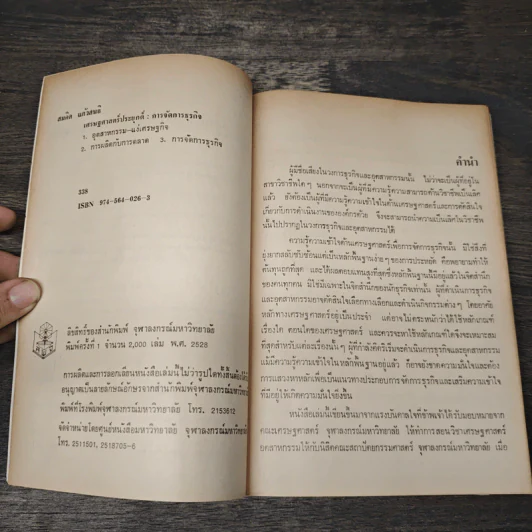 สมคิด แก้วสนธิ
เศรษฐศาสตร์ประยุกต์ : การจัดการธุรกิจ
1. อุตสาหกรรม-แง่เศรษฐกิจ
2. การผลิตกับการตลาด 3. การจัดการธุรกิจ
338
ISBN 974-564-026-3
ลิขสิทธิ์ของสำนักพิมพ์ จุฬาลงกรณ์มหาวิทยาลัย
พิมพ์ครั้งที่ 1 จำนวน 2,000 เล่ม พ.ศ. 2528
การผลิตและการลอกเลียนหนังสือเล่มนี้ไม่ว่ารูปใดทั้งสิ้นต้องได้
อนุญาตเป็นลายลักษณ์อักษรจากสำนักพิมพ์จุฬาลงกรณ์มหาวิทยาลัย
พิมพ์ที่โรงพิมพ์จุฬาลงกรณ์มหาวิทยาลัย โทร. 2153612
จัดจำหน่ายโดยศูนย์หนังสือมหาวิทยาลัย จุฬาลงกรณ์มหาวิทยาลัย
โทร. 2511521, 2518705-6
คำนำ
ผู้มีชื่อเสียงในวงการธุรกิจและอุตสาหกรรมนั้น ไม่ว่าจะเป็นผู้ที่อยู่ใน
สาขาวิชาชีพใด ๆ นอกจากจะเป็นผู้ที่มีความรู้ความสามารถด้านวิชาชีพเป็นเลิศ
แล้ว ยังต้องเป็นผู้ที่มีความรู้ความเข้าใจในด้านเศรษฐศาสตร์และการตัดสินใจ
เกี่ยวกับการดำเนินงานขององค์กรด้วย จึงจะสามารถนำความเป็นเลิศในวิชาชีพ
นั้นไปปรากฏในวงการธุรกิจและอุตสาหกรรมได้
ความรู้ความเข้าใจด้านเศรษฐศาสตร์เพื่อการจัดการธุรกิจนั้น มิใช่สิ่งที่
ยุ่งยากสลับซับซ้อนแต่เป็นหลักพื้นฐานง่ายๆของการประหยัด คือพยายามทำให้
ต้นทุนถูกที่สุด และให้ผลตอบแทนสูงที่สุดซึ่งหลักพื้นฐานนี้มีอยู่แล้วในจิตสำนึก
ของคนทุกคน มิใช่มีเฉพาะในจิตสำนึกของนักธุรกิจเท่านั้น ผู้ที่ดำเนินการธุรกิจ
และอุตสาหกรรมอาจตัดสินใจเลือกทางเลือกและดำเนินกิจกรรมต่าง ๆ โดยอาศัย
หลักทางเศรษฐศาสตร์อยู่เป็นประจำ แต่อาจไม่ตระหนักว่าได้ใช้หลักเกณฑ์
เรื่องใด ตอนใดของเศรษฐศาสตร์ และควรจะใช้หลักเกณฑ์ใดจึงจะเหมาะสม
ที่สุดสำหรับแต่ละเรื่องนั้นๆ ผู้ที่กำลังคิดริเริ่มจะดำเนินการธุรกิจและอุตสาหกรรม
แม้มีความรู้ความเข้าใจในหลักพื้นฐานอยู่แล้ว ก็อาจยังขาดความมั่นใจและต้อง
การแสวงหาหลักเพื่อเป็นแนวทางประกอบการจัดการธุรกิจและเสริมความเข้าใจ
ที่มีอยู่ให้เกิดความมั่นใจยิ่งขึ้น
หนังสือเล่มนี้เขียนขึ้นมาจากแรงบันดาลใจที่ข้าพเจ้าได้รับมอบหมายจาก
คณะเศรษฐศาสตร์ จุฬาลงกรณ์มหาวิทยาลัย ให้ทำการสอนวิชาเศรษฐศาสตร์
อุตสาหกรรมให้กับนิสิตคณะสถาปัตยกรรมศาสตร์ จุฬาลงกรณ์มหาวิทยาลัย เมื่อ